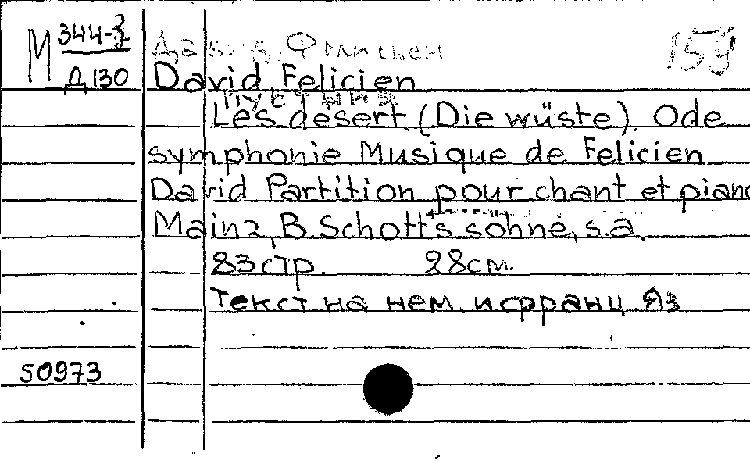 М 344-3
Д 130
Давид Фелисьен
159
David Felicien
Пустыня
Les desert (Die wüste) Ode
symphonie Musique de Felicien
David Partition pour chant et piano
Mainz, B. Schott's söhne, s.a.
83 стр. 28 см.
Текст на нем. и франц яз
50973